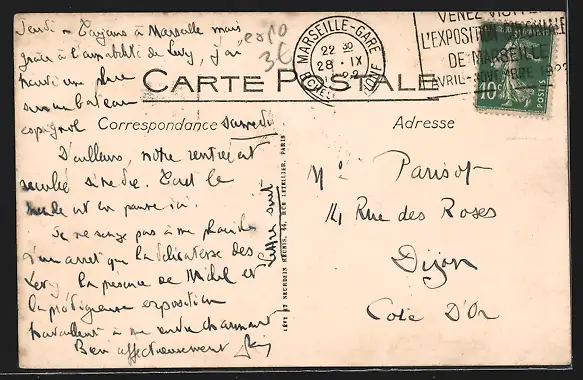 Jeudi – Toujours à Marseille mais
grâce à l'amabilité de Levy, j'ai
trouvé une place
sur un bateau
espagnol
samedi
D'ailleurs, notre rentrée est
reculée sine die. Tout le
monde est en panne ici.
Je ne songe pas à me plaindre
d'un arrêt que la délicatesse des
Levy la présence de Michel et
la prodigieuse exposition
travaillent à me rendre charmant
Bien affectueusement
lettre suit
CARTE POSTALE
Correspondance
Adresse
MARSEILLE-GARE
22 30
28 - IX
B DU RHONE
VENEZ VISITER
L'EXPOSITION COLONIALE
DE MARSEILLE
AVRIL-NOVEMBRE 1922
10c
POSTES
LÉVY ET NEURDEIN RÉUNIS, 44, RUE LETELLIER, PARIS
Parisot
14 Rue des Roses
Dijon
Cote D'Or